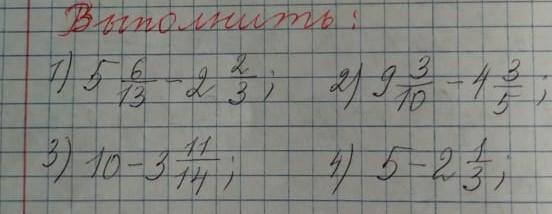 Выполнить:
1) 5 6/13 - 2 2/3; 2) 9 3/10 - 4 3/5;
3) 10 - 3 11/14; 4) 5 - 2 1/3;